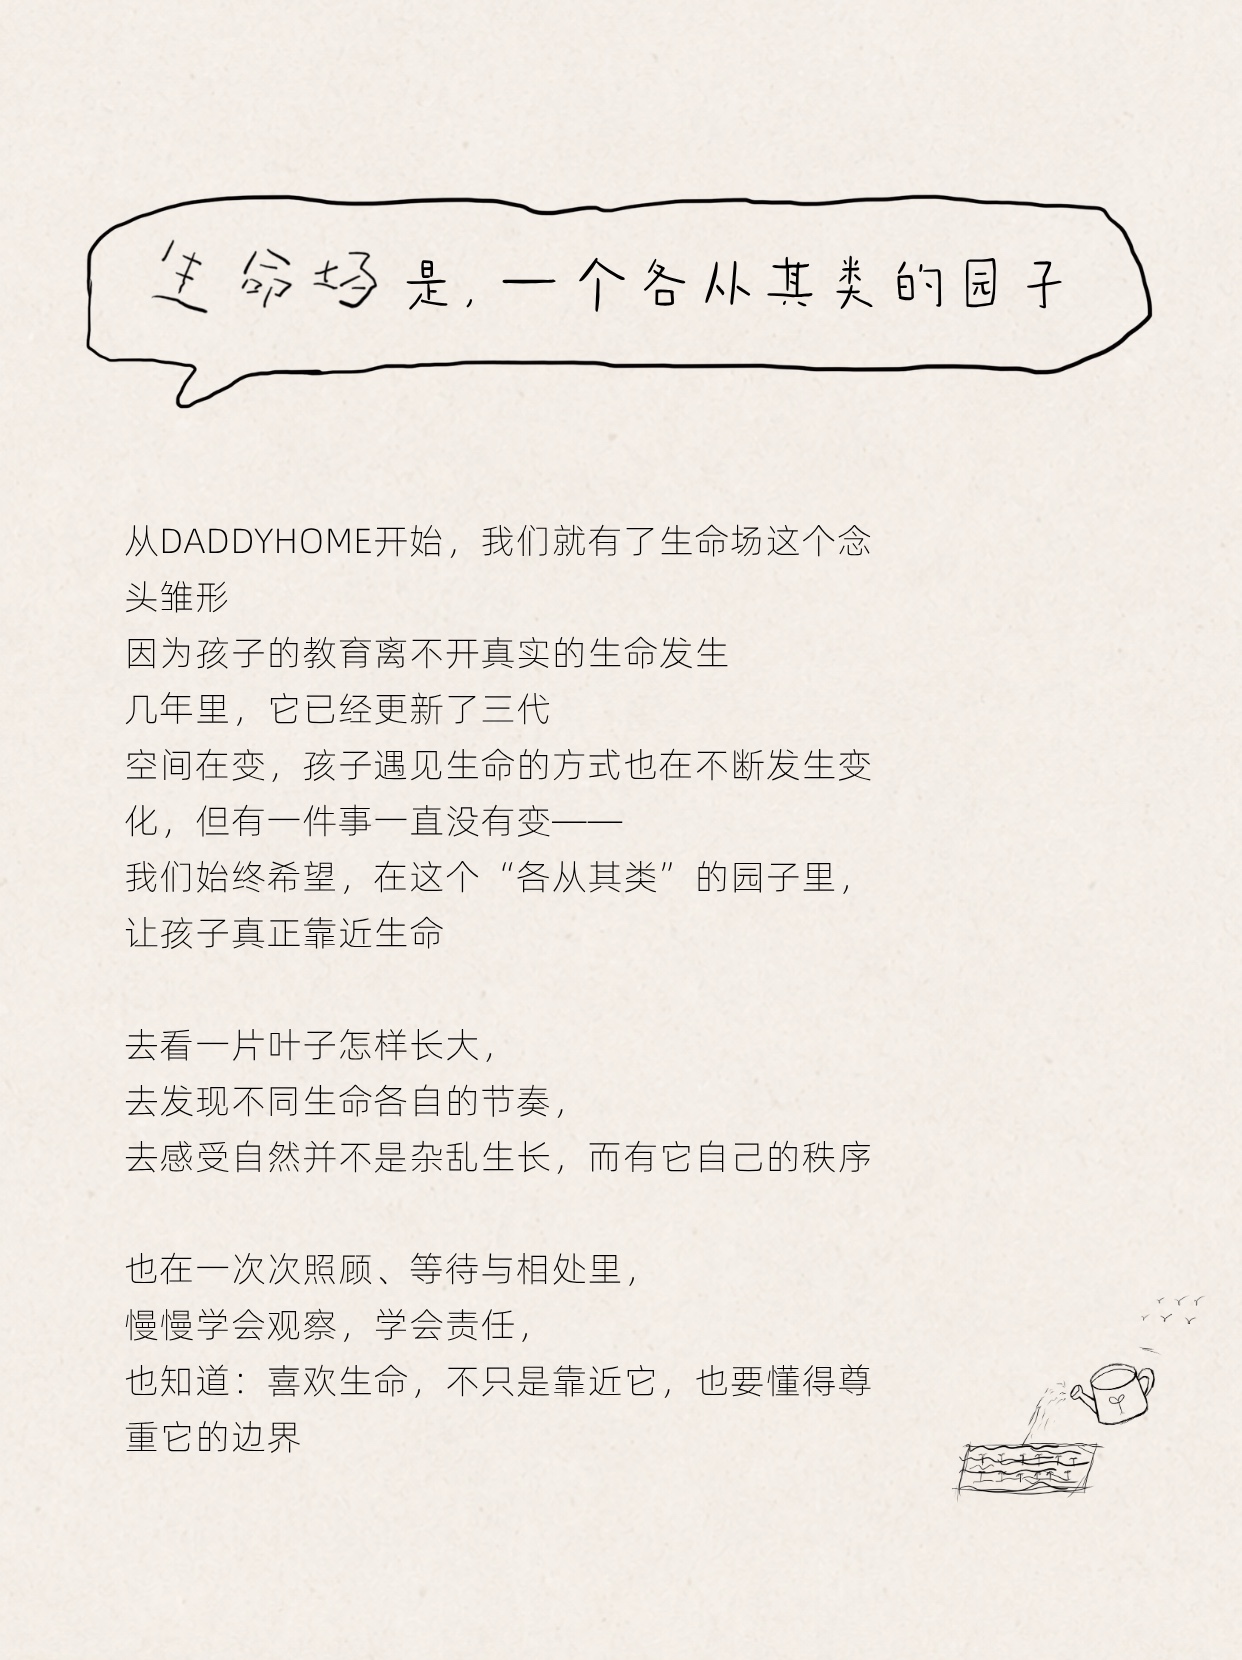 生命场是，一个各从其类的园子
从DADDYHOME开始，我们就有了生命场这个念
头雏形
因为孩子的教育离不开真实的生命发生
几年里，它已经更新了三代
空间在变，孩子遇见生命的方式也在不断发生变
化，但有一件事一直没有变——
我们始终希望，在这个“各从其类”的园子里，
让孩子真正靠近生命
去看一片叶子怎样长大，
去发现不同生命各自的节奏，
去感受自然并不是杂乱生长，而有它自己的秩序
也在一次次照顾、等待与相处里，
慢慢学会观察，学会责任，
也知道：喜欢生命，不只是靠近它，也要懂得尊
重它的边界